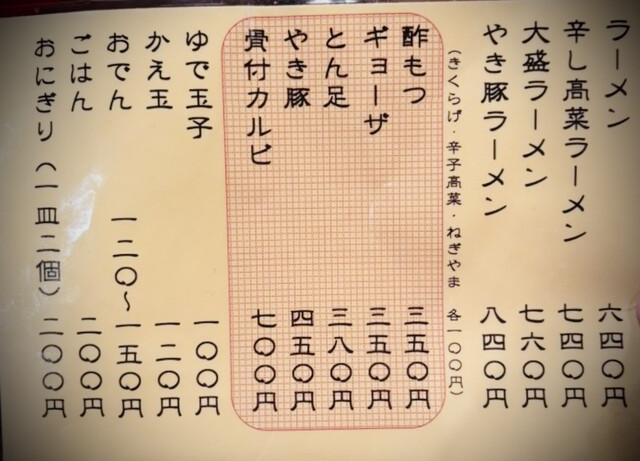 ラーメン 六四〇円
辛し高菜ラーメン 七四〇円
大盛ラーメン 七六〇円
やき豚ラーメン 八四〇円
（きくらげ・辛子高菜・ねぎやま 各一〇〇円）
酢もつ 三五〇円
ギョーザ 三五〇円
とん足 三八〇円
やき豚 四五〇円
骨付カルビ 七〇〇円
ゆで玉子 一〇〇円
かえ玉 一二〇円
おでん 一二〇〜一五〇円
ごはん 二〇〇円
おにぎり（一皿二個）二〇〇円